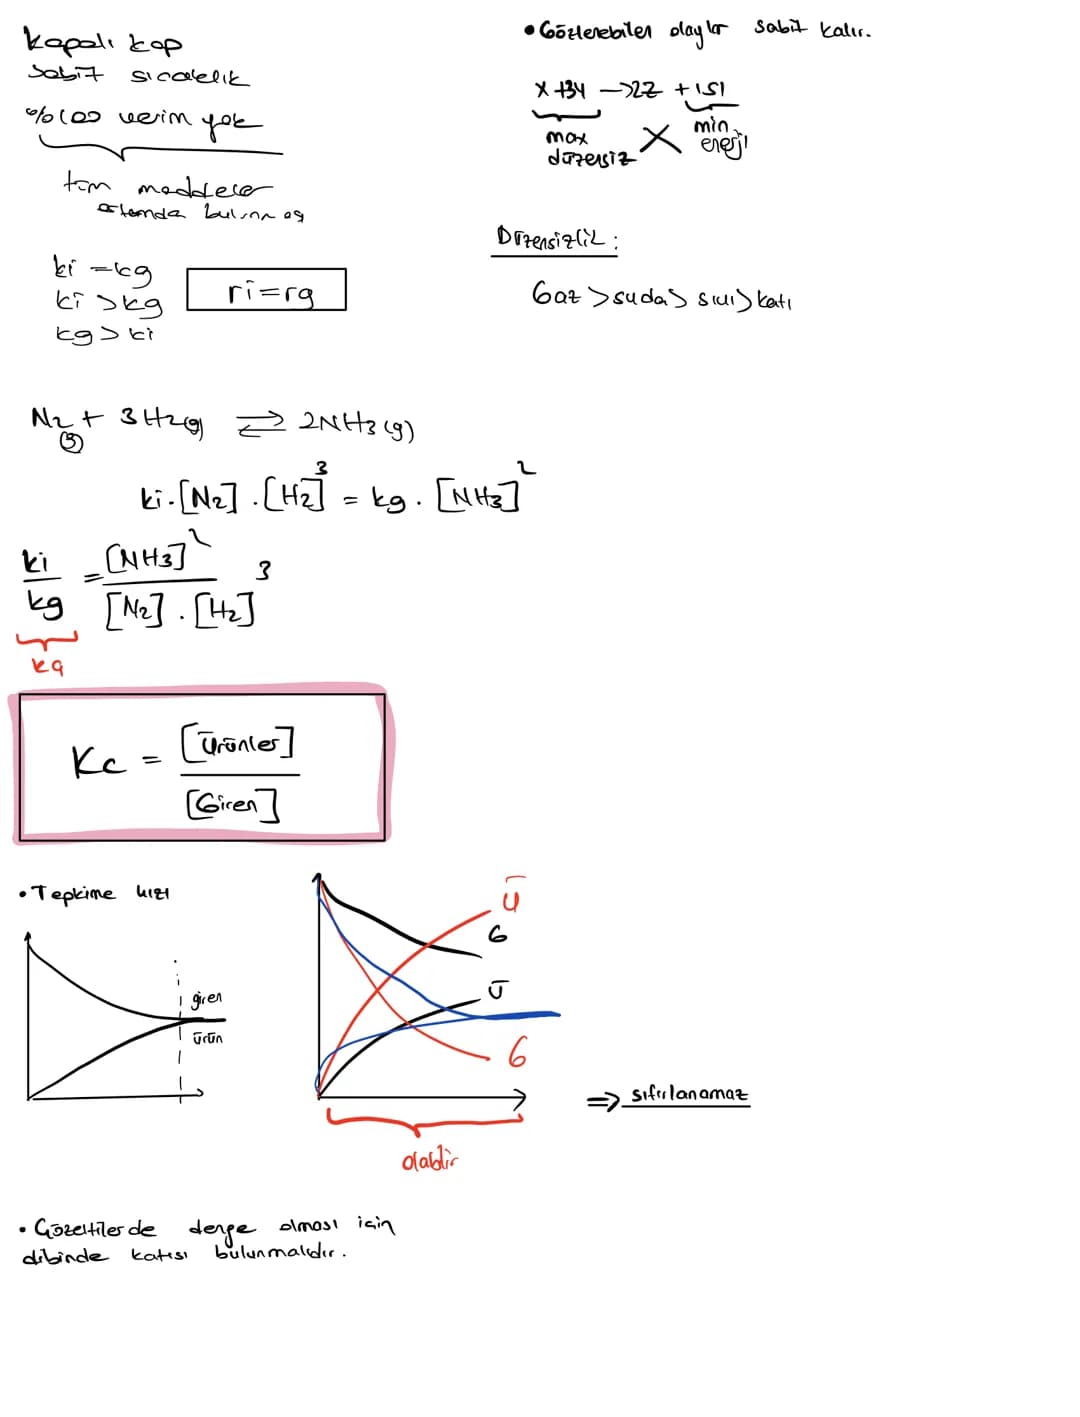 Kapalı kap
Sabit sıcaklık
%100 verim yok
tüm maddeler
ortamda bulunmalı
ki = kg
ki > kg
kg > ki
ri = rg
• Gözlenebilen olaylar sabit kalır.
X + 3Y → 2Z + ISI
max
düzensiz
X
min
enerji
Düzensizlik :
Gaz > suda > sıvı > katı
N2(g) + 3H2(g) ⇄ 2NH3(g)
ki · [N2] · [H2]³ = kg · [NH3]²
ki/kg = [NH3]² / [N2] · [H2]³
Kc = [Ürünler] / [Giren]
• Tepkime hızı
giren
ürün
Ü
G
Ü
G
olabilir
⇒ sıfırlanamaz
• Çözeltilerde denge olması için
dibinde katısı bulunmalıdır.